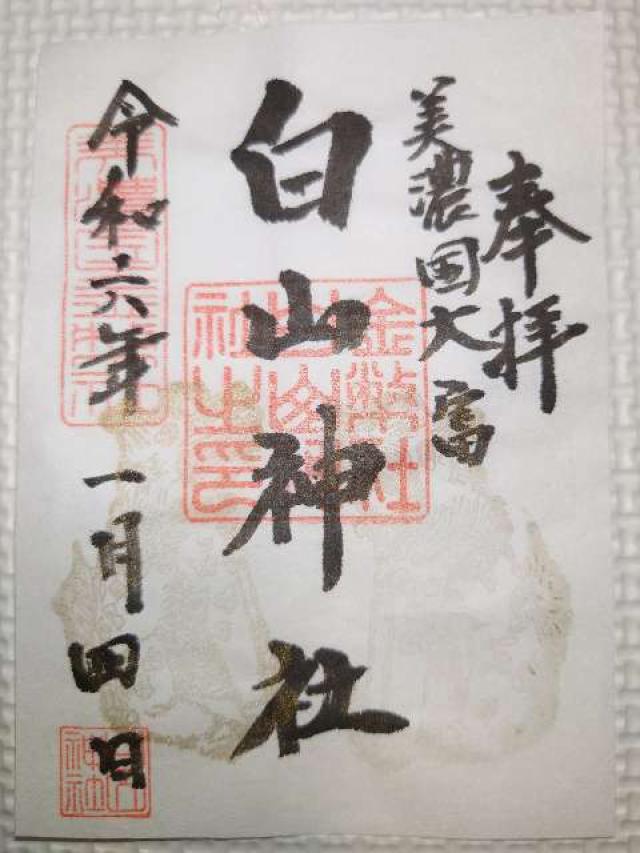 奉拝
美濃国大富
白山神社
令和六年一月四日
金幣社
白山神
社之印